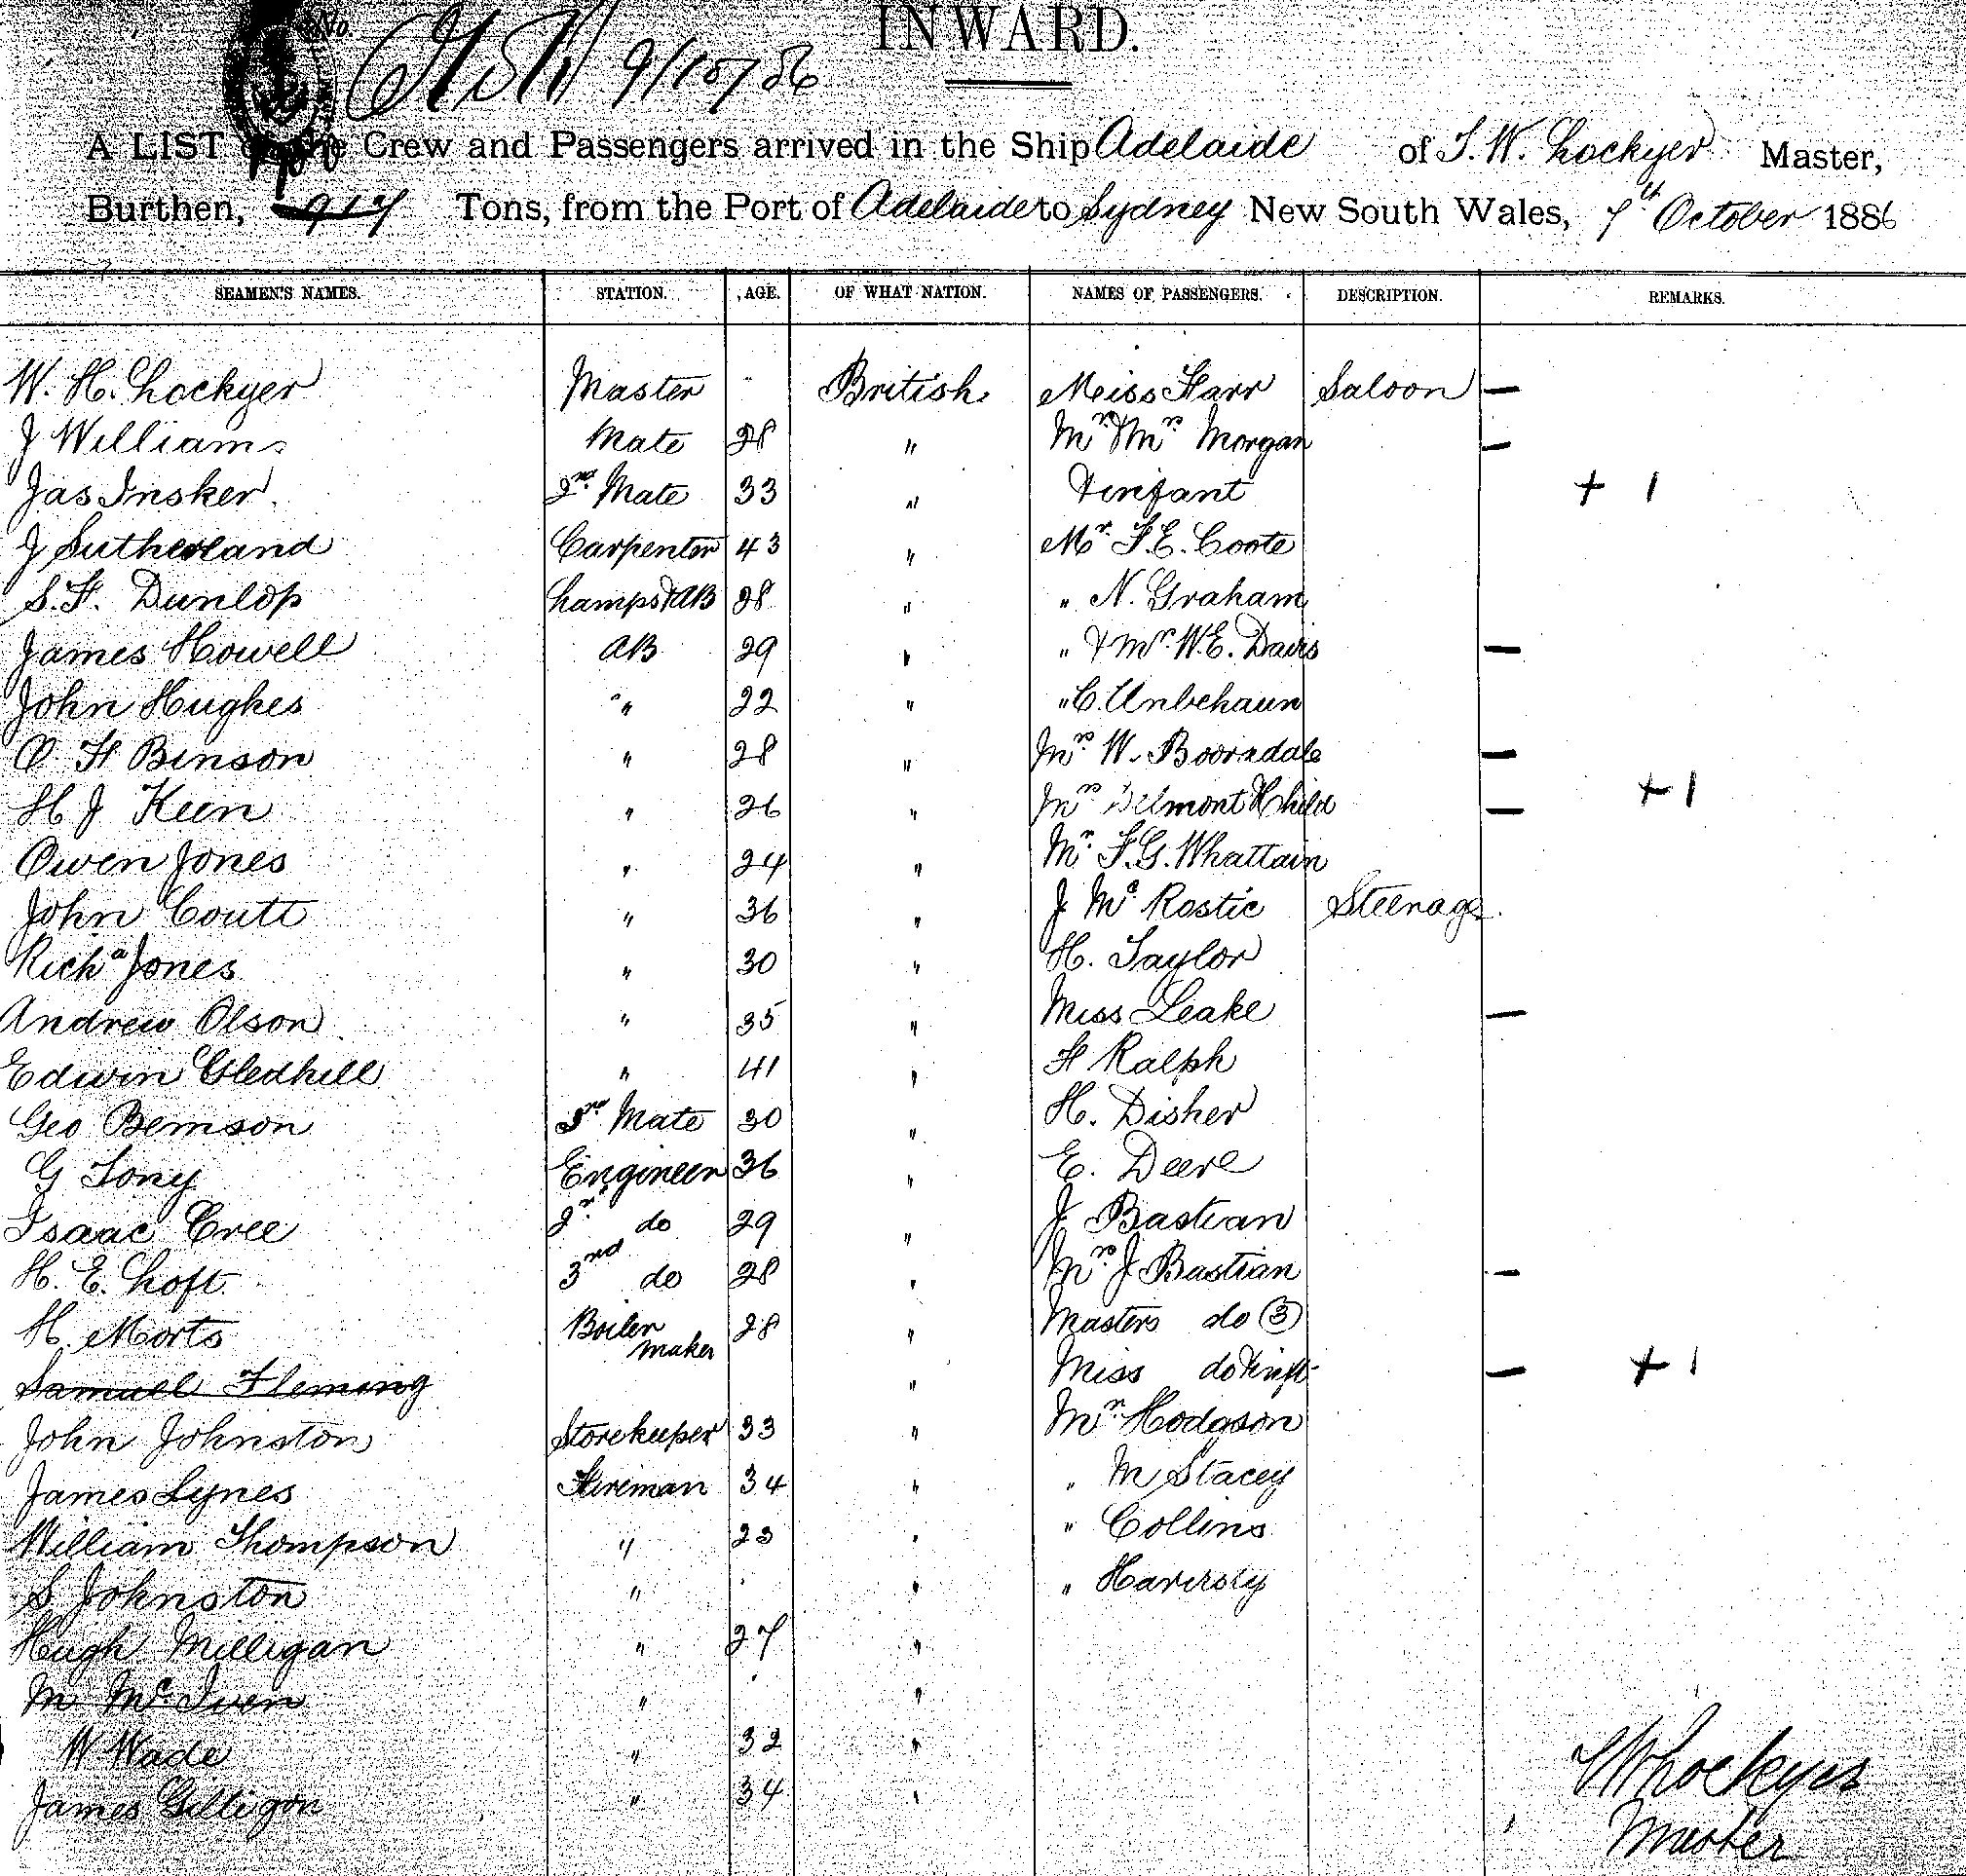 No.
9/10/86
INWARD.
A LIST of the Crew and Passengers arrived in the Ship Adelaide of T. W. Lockyer Master,
Burthen, 914 Tons, from the Port of Adelaide to Sydney New South Wales, 7th October 1886
SEAMEN'S NAMES. STATION. AGE. OF WHAT NATION. NAMES OF PASSENGERS. DESCRIPTION. REMARKS.
W. H. Lockyer Master British Miss Farr Saloon —
J Williams Mate 28 " Mr & Mrs Morgan —
Jas Insker 2nd Mate 33 " & infant + 1
J Sutherland Carpenter 43 " Mr. F. E. Coote
S. F. Dunlop Lamps & AB 28 " " N. Graham
James Howell AB 29 " " & Mrs W. E. Davis —
John Hughes " 22 " " C. Unbehaun
O H Binson " 28 " Mrs W. Boorndale —
H J Keen " 26 " Mrs Belmont & Child — + 1
Owen Jones " 24 " Mr. F. G. Whattam
John Coutt " 36 " J Mc Rostie Steerage.
Richd Jones " 30 " H. Taylor
Andrew Olson " 35 " Miss Leake —
Edwin Gledhill " 41 " H Ralph
Geo Bemson 3rd Mate 30 " H. Disher
G Tony Engineer 36 " E. Deere
Isaac Cree 2nd do 29 " J Bastian
H. E. Loft 3rd do 28 " Mrs J Bastian —
H. Morts Boiler maker 28 " Masters do (3)
Samuel Fleming " Miss do & inft — + 1
John Johnston Storekeeper 33 " Mr. Hodgson
James Lynes Fireman 34 " " M Stacey
William Thompson " 23 " " Collins
S Johnston " " "
Hugh Milligan " 27 "
M Mc Iven " "
W Wade " 32 "
James Gilligon " 34 "
T W Lockyer
Master